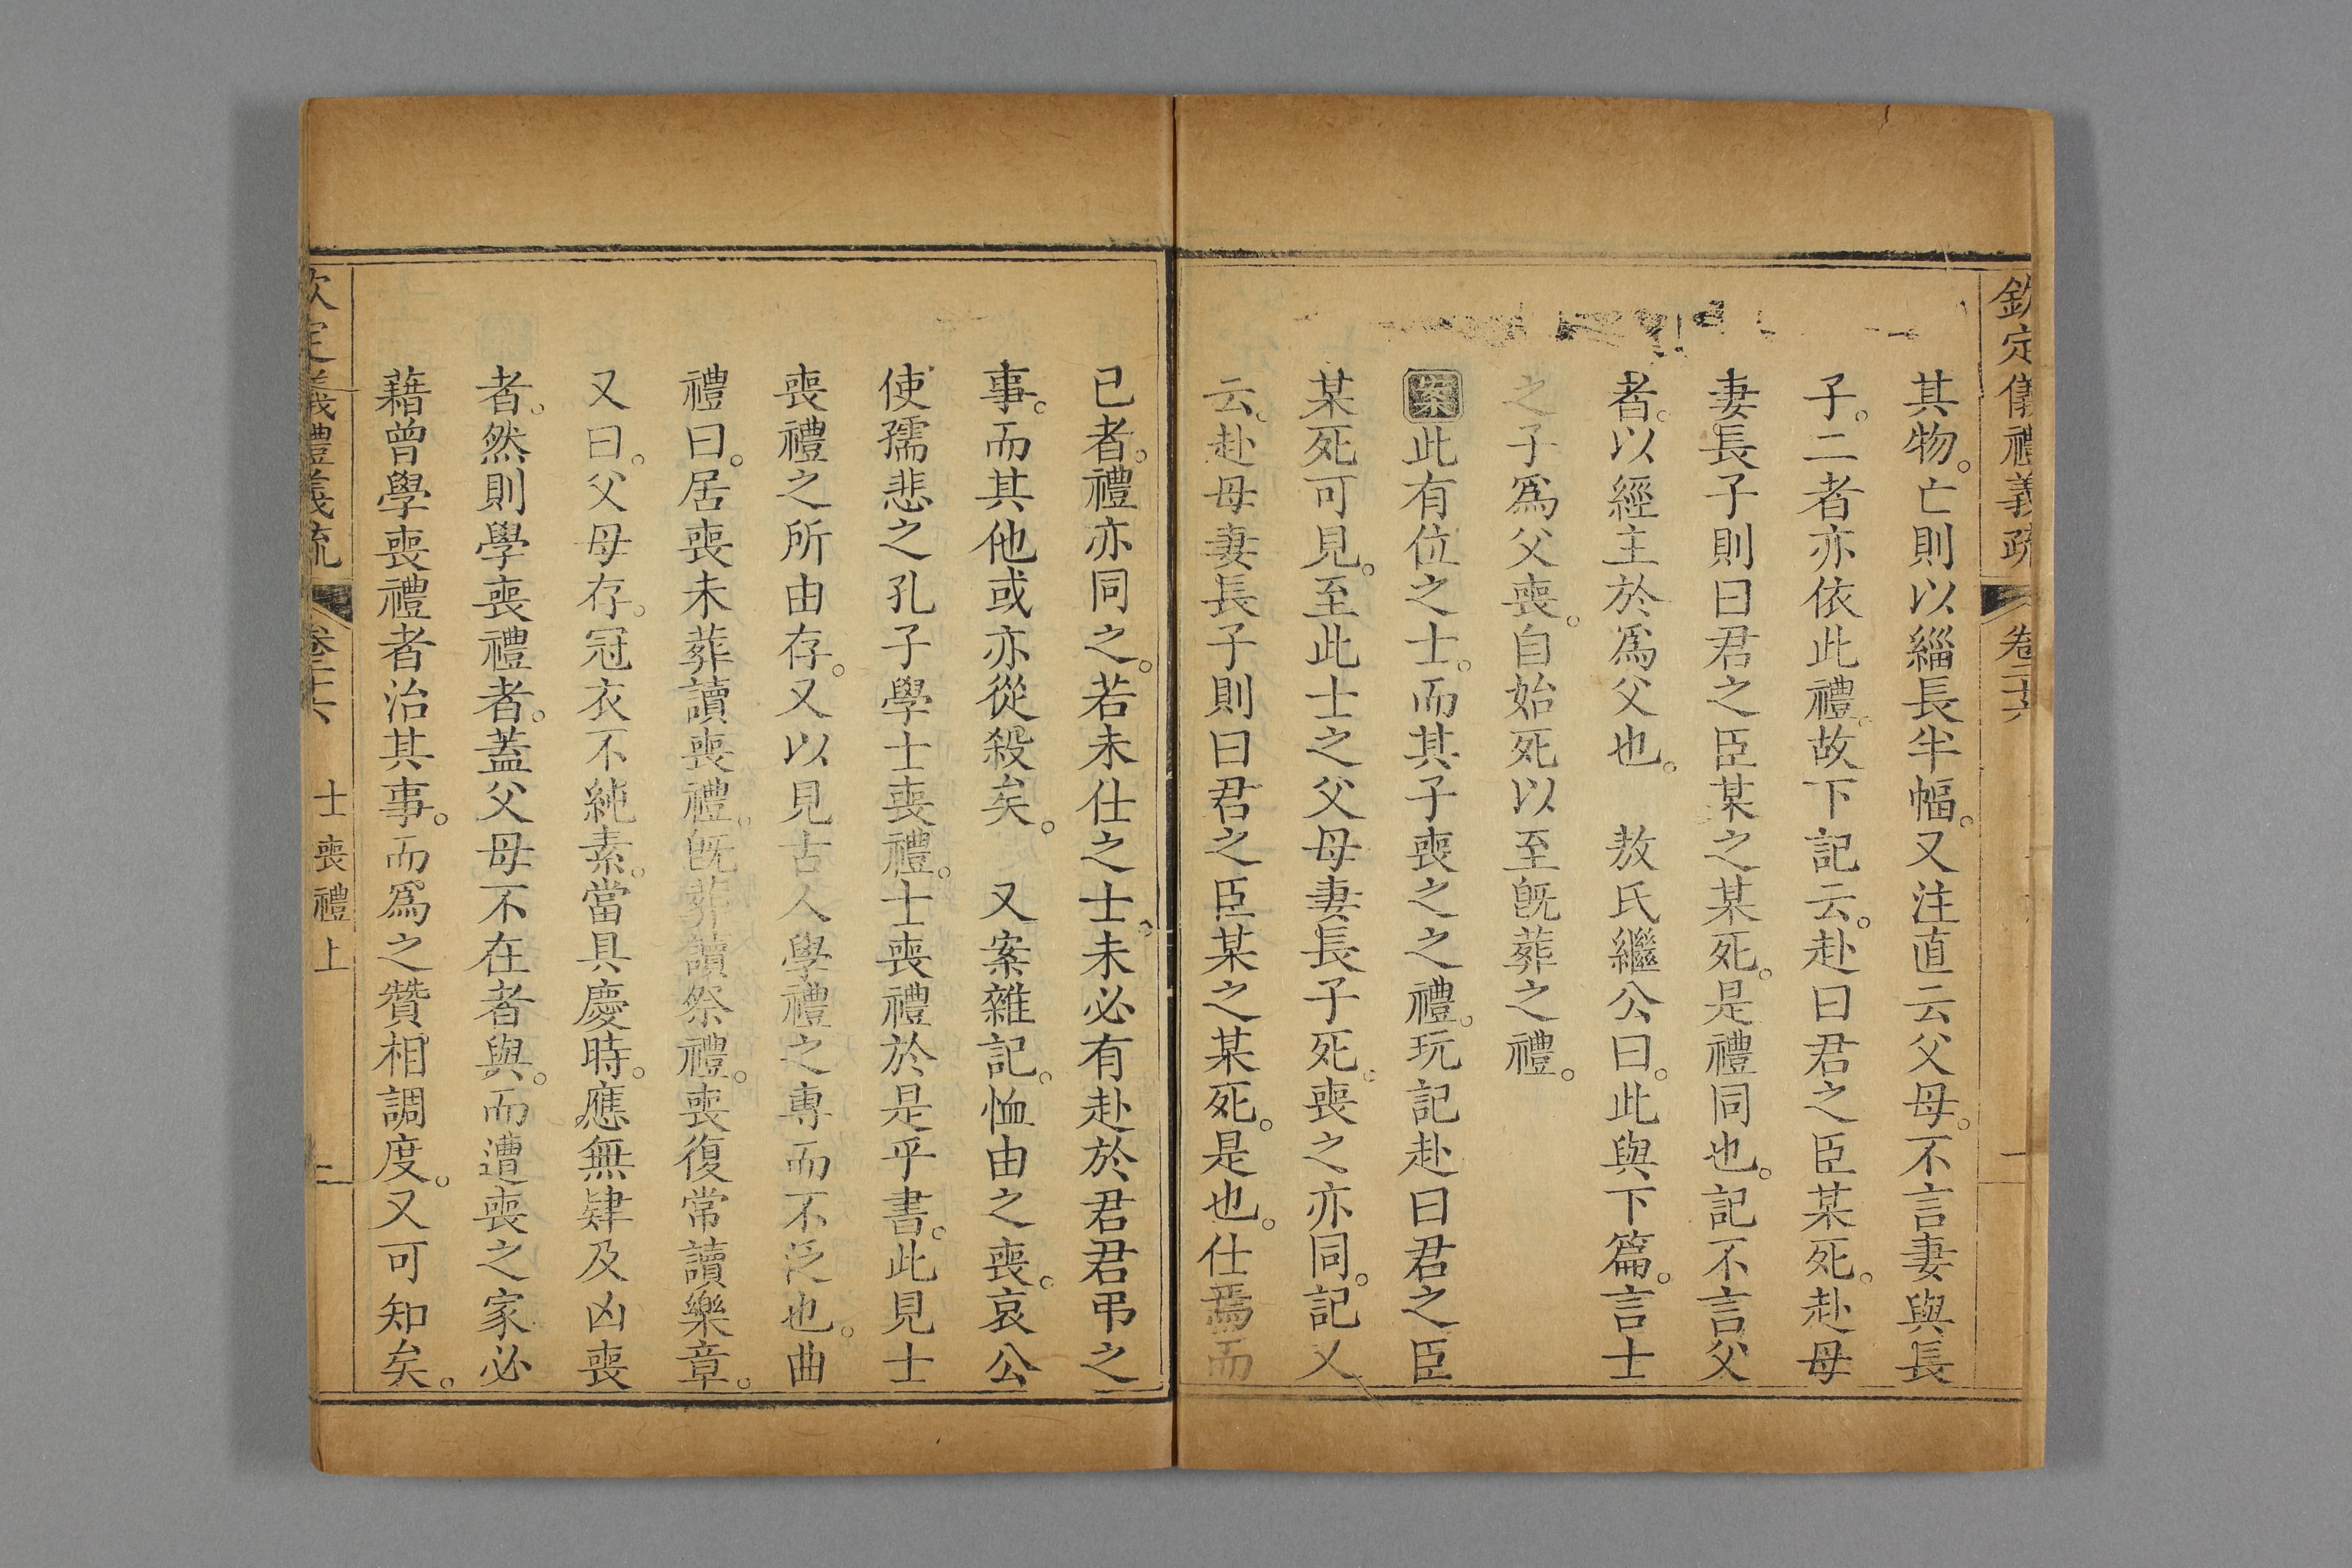 欽定儀禮義疏 卷二十六 一
其物。亡則以緇長半幅。又注直云父母。不言妻與長
子。二者亦依此禮。故下記云。赴曰君之臣某死。赴母
妻長子則曰君之臣某之某死。是禮同也。記不言父
者。以經主於爲父也。 敖氏繼公曰。此與下篇。言士
之子爲父喪。自始死以至旣葬之禮。
案此有位之士。而其子喪之之禮。玩記赴曰君之臣
某死可見。至此士之父母妻長子死。喪之亦同。記又
云。赴母妻長子則曰君之臣某之某死。是也。仕焉而
已者。禮亦同之。若未仕之士。未必有赴於君君弔之
事。而其他或亦從殺矣。 又案雜記。恤由之喪。哀公
使孺悲之孔子學士喪禮。士喪禮於是乎書。此見士
喪禮之所由存。又以見古人學禮之專而不泛也。曲
禮曰。居喪未葬讀喪禮。旣葬讀祭禮。喪復常讀樂章。
又曰。父母存。冠衣不純素。當具慶時。應無肄及凶喪
者。然則學喪禮者。蓋父母不在者與。而遭喪之家必
藉曾學喪禮者治其事。而爲之贊相調度。又可知矣。
欽定儀禮義疏 卷二十六 士喪禮上 二